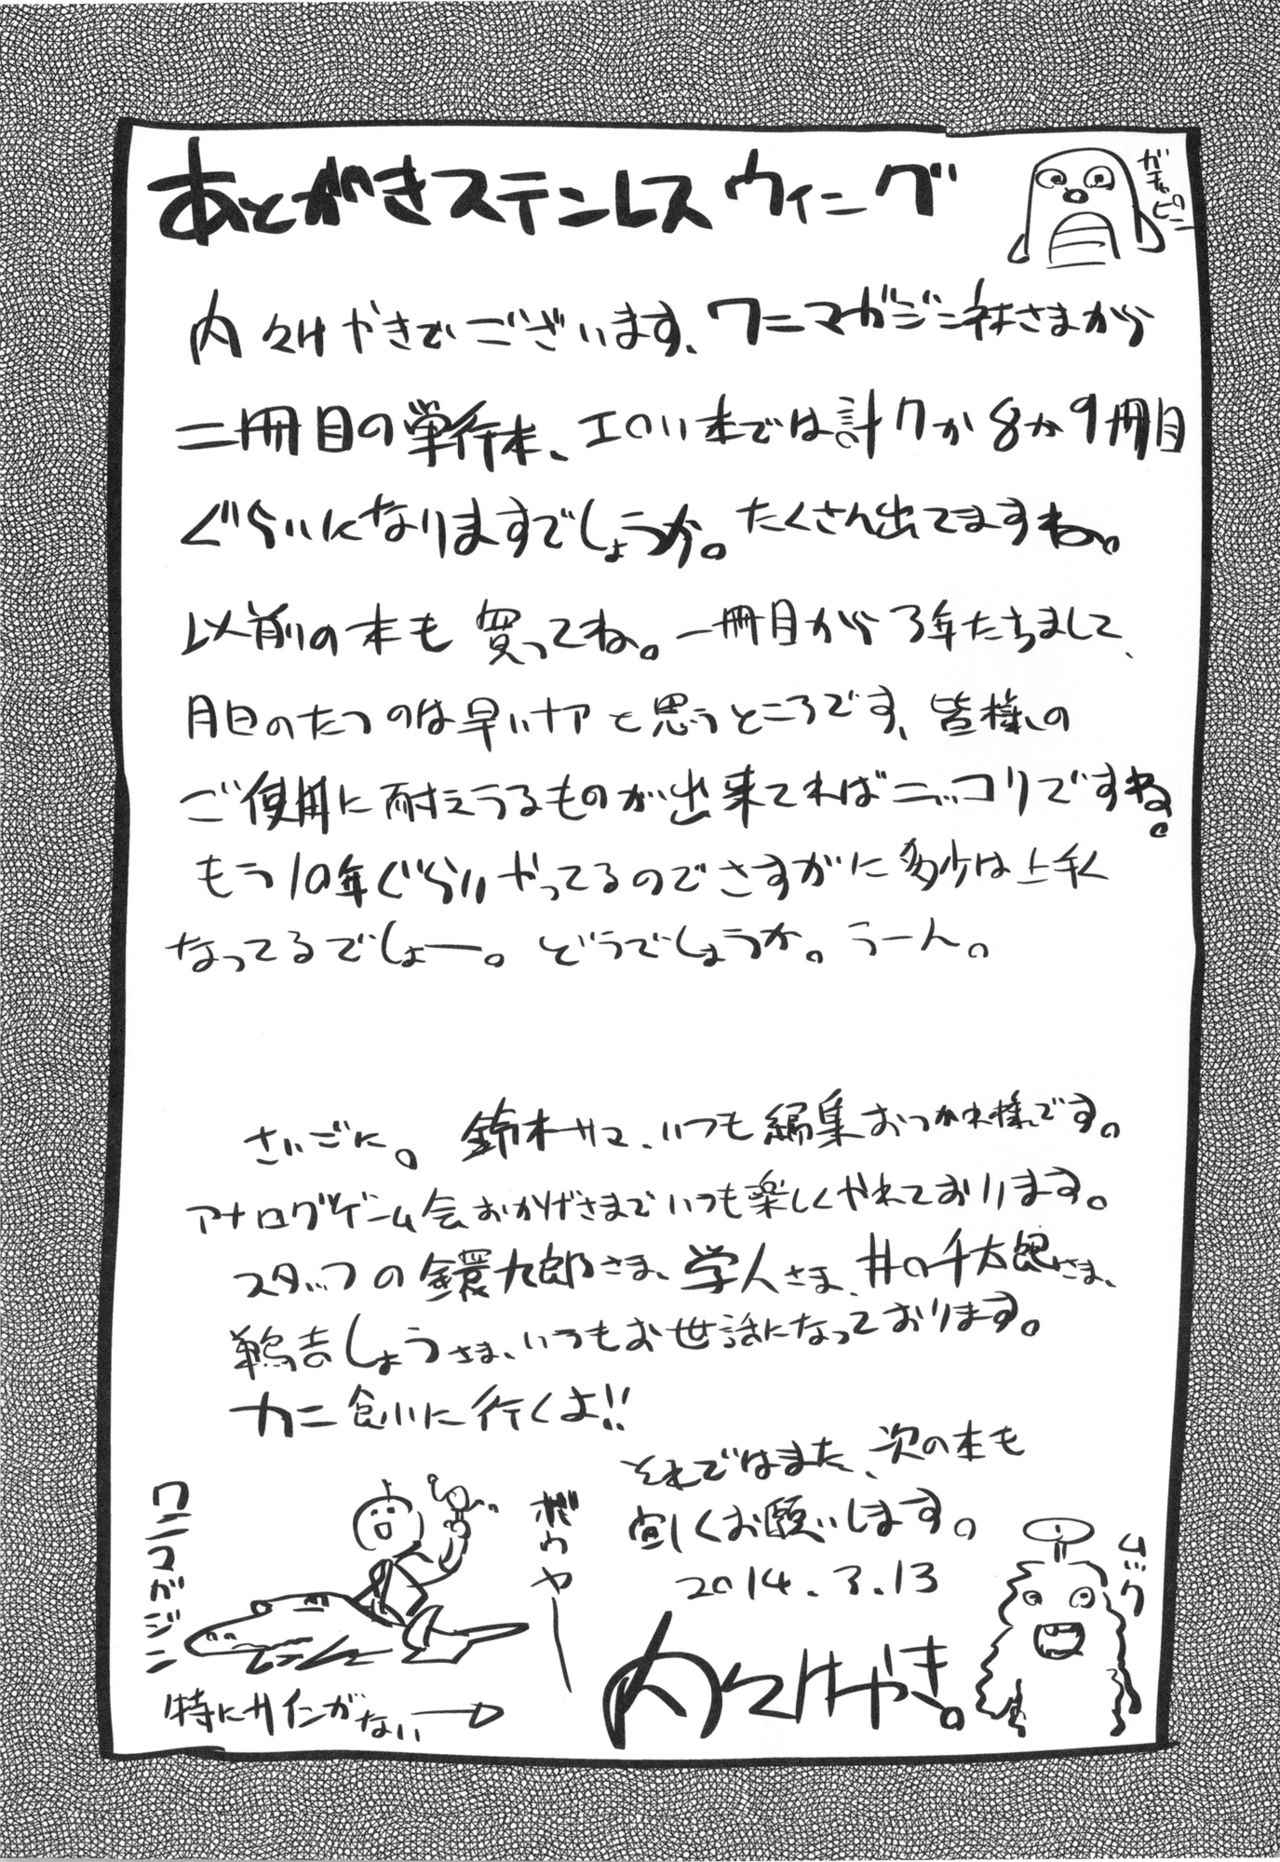 あとがきステンレスウィング
ガチャピン
内々けやきでございます、ワニマガジン社さまから
二冊目の単行本、エロい本では計7か8か9冊目
ぐらいになりますでしょうか。たくさん出てますね。
以前の本も買ってね。一冊目から3年たちまして、
月日のたつのは早いナアと思うところです、皆様の
ご使用に耐えうるものが出来てればニッコリですね。
もう10年ぐらいやってるのでさすがに多少は上手く
なってるでしょー。どうでしょうか。うーん。
さいごに。鈴木サマ、いつも編集おつかれ様です。
アナログゲーム会おかげさまでいつも楽しくやれております。
スタッフの鐶九郎さま、学人さま、井の千太郎さま、
鶏吉しょうさま、いつもお世話になっております。
カニ食いに行くよ!!
それではまた、次の本も
宜しくお願いします。
2014.3.13
内々けやき。
ワニマガジン
ボウヤー
特にサインがない
ムック